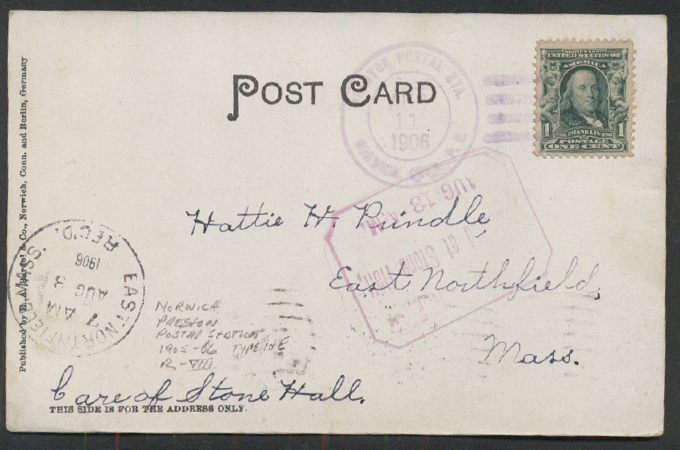 POST CARD
POSTAL STA.
11
1906
NORWICH, CONN.
UNITED STATES OF
AMERICA
1 1
FRANKLIN
POSTAGE
ONE CENT
AUG 13
at Stone Hall
Hattie H. Prindle,
East Northfield,
Mass.
Care of Stone Hall.
EAST NORTHFIELD, MASS.
7 AM
AUG 3
1906
REC'D.
NORWICH
PRESTON
POSTAL STATION
1905-06 TYPE II/E
R-VIII
Published by & Co., Norwich, Conn. and Berlin, Germany
THIS SIDE IS FOR THE ADDRESS ONLY.